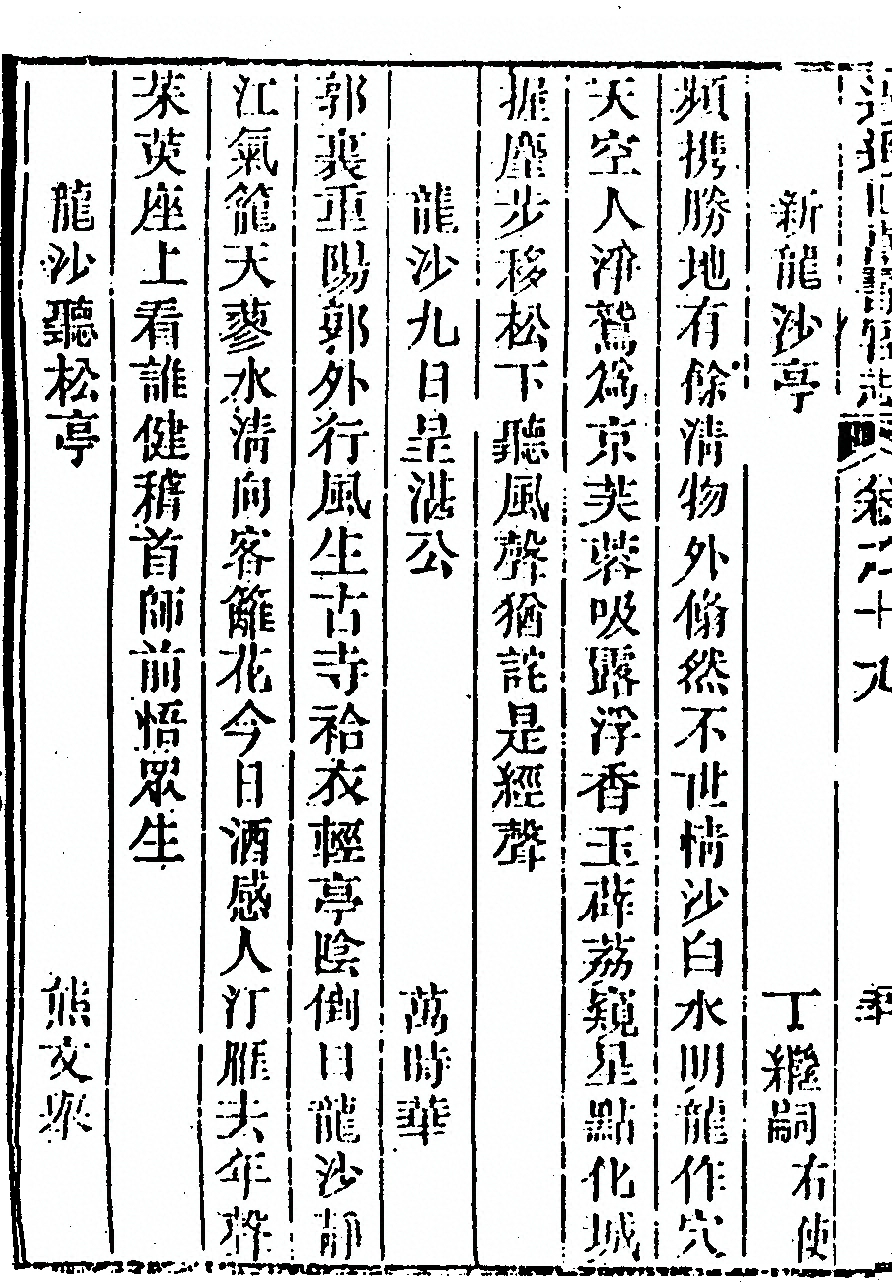 逍遙山萬壽宮志 卷之十九
新龍沙亭 丁繼嗣 右使
頻携勝地有餘清物外翛然不世情沙白水明龍作穴
天空人淨鷲為京芙蓉吸露浮香玉薜荔窺星點化城
握麈步移松下聽風聲猶詫是經聲
龍沙九日呈湛公 萬時華
郭裏重陽郭外行風生古寺袷衣輕亭陰倒日龍沙靜
江氣籠天蓼水清向客籬花今日酒感人汀雁去年聲
茱萸座上看誰健稽首師前悟眾生
龍沙聽松亭 熊文舉